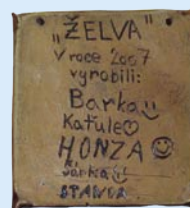 "ŽELVA"
V roce 2007
vyrobili:
Barka
Katule
HONZA
Šárka
STANDA